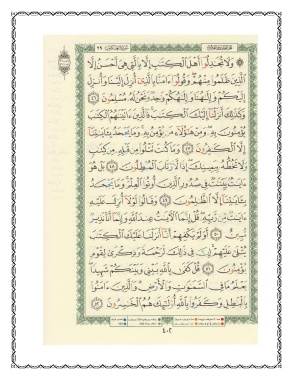 وَلَا تُجَٰدِلُوٓا۟ أَهْلَ ٱلْكِتَٰبِ إِلَّا بِٱلَّتِى هِىَ أَحْسَنُ إِلَّا
ٱلَّذِينَ ظَلَمُوا۟ مِنْهُمْ وَقُولُوٓا۟ ءَامَنَّا بِٱلَّذِىٓ أُنزِلَ إِلَيْنَا وَأُنزِلَ
إِلَيْكُمْ وَإِلَٰهُنَا وَإِلَٰهُكُمْ وَٰحِدٌ وَنَحْنُ لَهُۥ مُسْلِمُونَ ٤٦
وَكَذَٰلِكَ أَنزَلْنَآ إِلَيْكَ ٱلْكِتَٰبَ فَٱلَّذِينَ ءَاتَيْنَٰهُمُ ٱلْكِتَٰبَ
يُؤْمِنُونَ بِهِۦ وَمِنْ هَٰٓؤُلَآءِ مَن يُؤْمِنُ بِهِۦ وَمَا يَجْحَدُ بِـَٔايَٰتِنَآ
إِلَّا ٱلْكَٰفِرُونَ ٤٧ وَمَا كُنتَ تَتْلُوا۟ مِن قَبْلِهِۦ مِن كِتَٰبٍ
وَلَا تَخُطُّهُۥ بِيَمِينِكَ إِذًا لَّٱرْتَابَ ٱلْمُبْطِلُونَ ٤٨ بَلْ هُوَ
ءَايَٰتٌۢ بَيِّنَٰتٌ فِى صُدُورِ ٱلَّذِينَ أُوتُوا۟ ٱلْعِلْمَ وَمَا يَجْحَدُ
بِـَٔايَٰتِنَآ إِلَّا ٱلظَّٰلِمُونَ ٤٩ وَقَالُوا۟ لَوْلَآ أُنزِلَ عَلَيْهِ
ءَايَٰتٌ مِّن رَّبِّهِۦ قُلْ إِنَّمَا ٱلْـَٔايَٰتُ عِندَ ٱللَّهِ وَإِنَّمَآ أَنَا۠ نَذِيرٌ
مُّبِينٌ ٥٠ أَوَلَمْ يَكْفِهِمْ أَنَّآ أَنزَلْنَا عَلَيْكَ ٱلْكِتَٰبَ
يُتْلَىٰ عَلَيْهِمْ إِنَّ فِى ذَٰلِكَ لَرَحْمَةً وَذِكْرَىٰ لِقَوْمٍ
يُؤْمِنُونَ ٥١ قُلْ كَفَىٰ بِٱللَّهِ بَيْنِى وَبَيْنَكُمْ شَهِيدًا
يَعْلَمُ مَا فِى ٱلسَّمَٰوَٰتِ وَٱلْأَرْضِ وَٱلَّذِينَ ءَامَنُوا۟
بِٱلْبَٰطِلِ وَكَفَرُوا۟ بِٱللَّهِ أُو۟لَٰٓئِكَ هُمُ ٱلْخَٰسِرُونَ ٥٢
٤٠٢